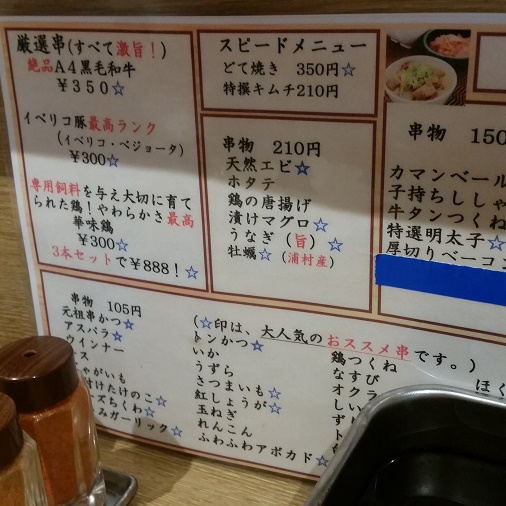 厳選串(すべて激旨！)
絶品A４黒毛和牛
￥３５０☆
イベリコ豚最高ランク
(イベリコ・ベジョータ)
￥300☆
専用飼料を与え大切に育て
られた鶏！やわらかさ最高
華味鶏
￥300☆
3本セットで￥888！☆
スピードメニュー
どて焼き 350円☆
特撰キムチ210円
串物 210円
天然エビ☆
ホタテ
鶏の唐揚げ
漬けマグロ☆
うなぎ（旨）☆
牡蠣☆（浦村産）
串物 150
カマンベール
子持ちしし
牛タンつくね
特選明太子☆
厚切りベーコン
串物 105円
(☆印は、大人気のおススメ串です。)
元祖串かつ☆
アスパラ☆
ウインナー
ス
ゃがいも
付けたけのこ☆
ズちくわ☆
みガーリック☆
トンかつ☆
いか
うずら
さつまいも☆
紅しょうが☆
玉ねぎ
れんこん
ふわふわアボカド☆
鶏つくね
なすび
オクラ
しい
ず
ト
ほく